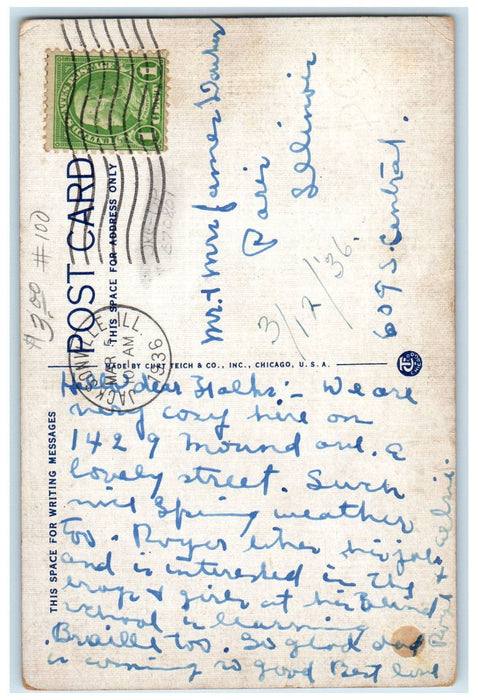 POST CARD
THIS SPACE FOR ADDRESS ONLY
JACKSONVILLE, ILL.
MAR
10 AM
1936
$3.00 #100
Mr. + Mrs James
Paris
Illinois
609 S. Central.
3/12/'36.
MADE BY CURT TEICH & CO., INC., CHICAGO, U.S.A.
THIS SPACE FOR WRITING MESSAGES
Hello dear Folks:- We are
very cozy here on
1429 Mound ave. a
lovely street. Such
nice Spring weather
too. likes his job
and is interested in the
boys + girls at his Blind
school is learning
Braille too. So glad dad
is coming so good Best love
+ Elsie.